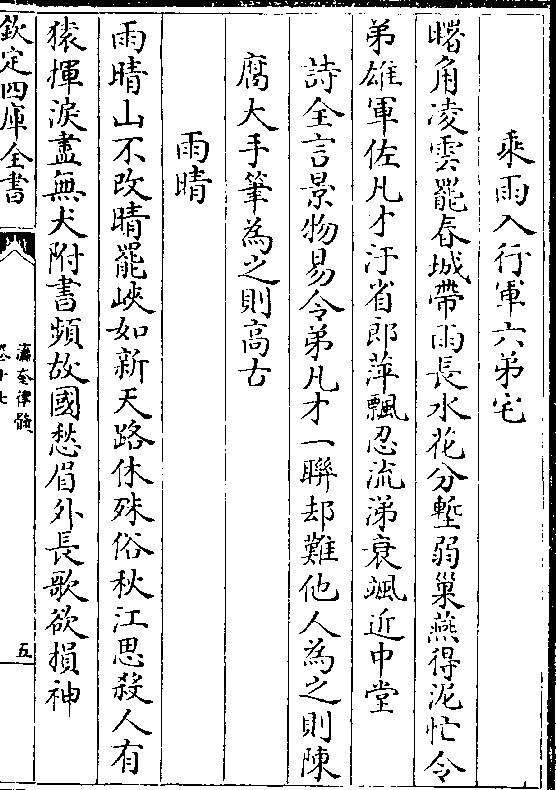 乘雨入行軍六弟宅
曙角凌雲罷春城帶雨長水花分塹弱巢燕得泥忙令
弟雄軍佐凡才汙省郎萍飄忍流涕衰颯近中堂
詩全言景物易令弟凡才一聯却難他人為之則陳
腐大手筆為之則高古
雨晴
雨晴山不改晴罷峽如新天路休殊俗秋江思殺人有
猿揮淚盡無犬附書頻故國愁眉外長歌欲損神
欽定四庫全書
瀛奎律髓
卷十七
五